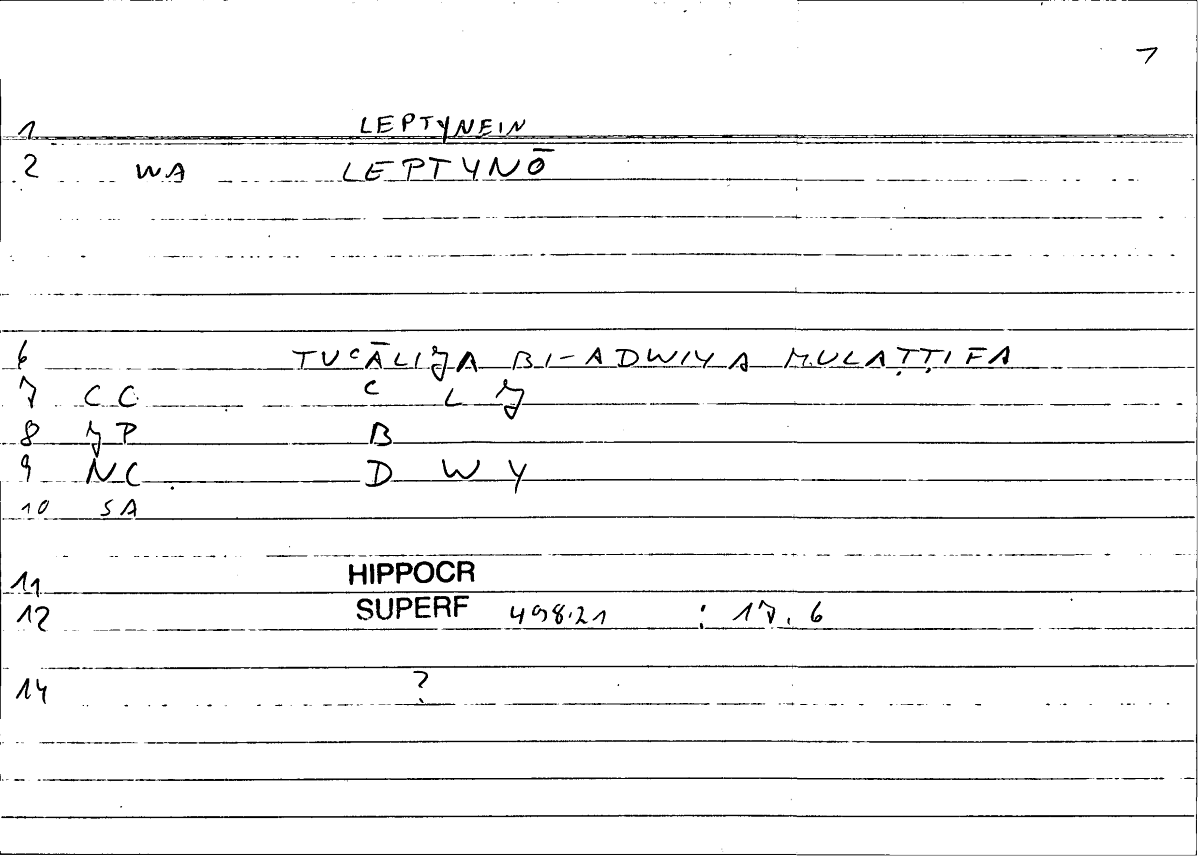 7
1 LEPTYNEIN
2 WA LEPTYNŌ
6 TUᶜĀLIǧA BI-ADWIYA MULAṬṬIFA
7 CC ᶜ L ǧ
8 ǧP B
9 NC D W Y
10 SA
11 HIPPOCR
12 SUPERF 498.21 : 17.6
14 ?